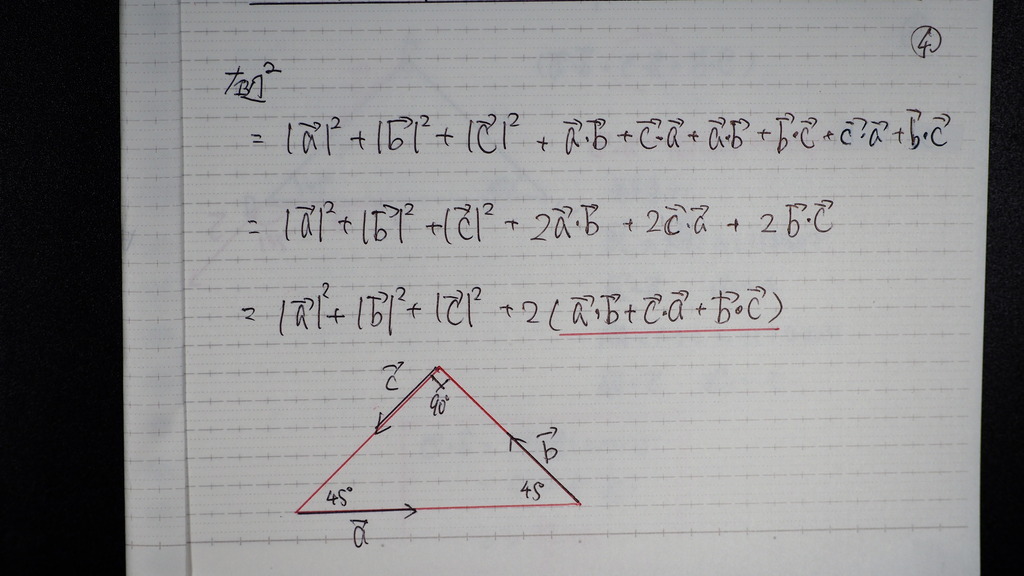 ④
|B|²
= |a⃗|² + |b⃗|² + |c⃗|² + a⃗·b⃗ + c⃗·a⃗ + a⃗·b⃗ + b⃗·c⃗ + c⃗·a⃗ + b⃗·c⃗
= |a⃗|² + |b⃗|² + |c⃗|² + 2a⃗·b⃗ + 2c⃗·a⃗ + 2b⃗·c⃗
= |a⃗|² + |b⃗|² + |c⃗|² + 2(a⃗·b⃗ + c⃗·a⃗ + b⃗·c⃗)
c⃗
90°
b⃗
45° 45°
a⃗